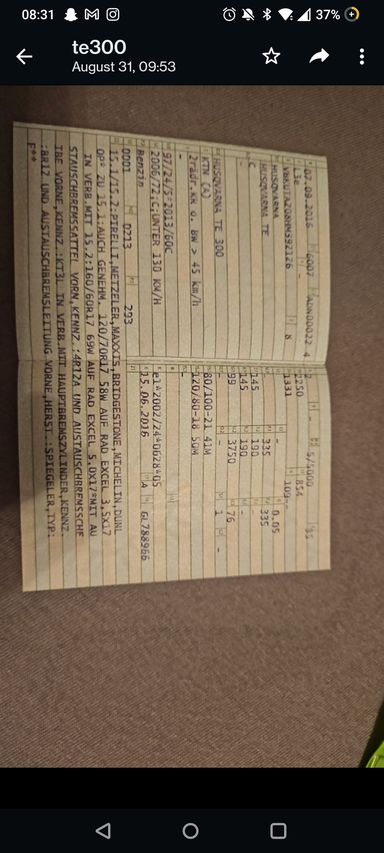 08:31
37%
te300
August 31, 09:53
07.09.2016 6007 ADN00022 4
L3e -
VBKUTA208HM392126 8
HUSQVARNA
HUSQVARNA TE
C
-
HUSQVARNA TE 300
KTM (A)
2rädr.KR o. BW > 45 km/h
-
97/24/5*2013/60C
2006/72,C;UNTER 130 KM/H
Benzin
0001 0213 293
2 - 5/5000
2250 854
1331 109--
- 0.05
145 190 335 335
145 190 -
- -
99 3750 76
- - 1 -
80/100-21 41M
120/80-18 50M
-
e1*2002/24*0628*05
15.06.2016 A GL788966
15.1/15.2:PIRELLI,METZELER,MAXXIS,BRIDGESTONE,MICHELIN,DUNL
OP* ZU 15.1:AUCH GENEHM. 120/70R17 58W AUF RAD EXCEL 3,5X17
IN VERB.MIT 15.2:160/60R17 69W AUF RAD EXCEL 5,0X17*MIT AU
STAUSCHBREMSSATTEL VORN,KENNZ.:4R12A UND AUSTAUSCHBREMSSCHE
IBE VORNE,KENNZ.:KT3L IN VERB.MIT HAUPTBREMSZYLINDER,KENNZ.
:BR12 UND AUSTAUSCHBREMSLEITUNG VORNE,HERST.:SPIEGLER,TYP:
F**